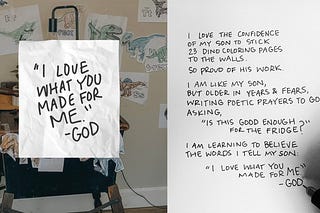 "I LOVE
WHAT YOU
MADE FOR
ME."
-GOD
I LOVE THE CONFIDENCE
OF MY SON TO STICK
23 DINO COLORING PAGES
TO THE WALLS.
SO PROUD OF HIS WORK.
I AM LIKE MY SON,
BUT OLDER IN YEARS & FEARS,
WRITING POETIC PRAYERS TO GOD
ASKING,
"IS THIS GOOD ENOUGH
FOR THE FRIDGE?"
I AM LEARNING TO BELIEVE
THE WORDS I TELL MY SON:
"I LOVE WHAT YOU
MADE FOR ME"
-GOD